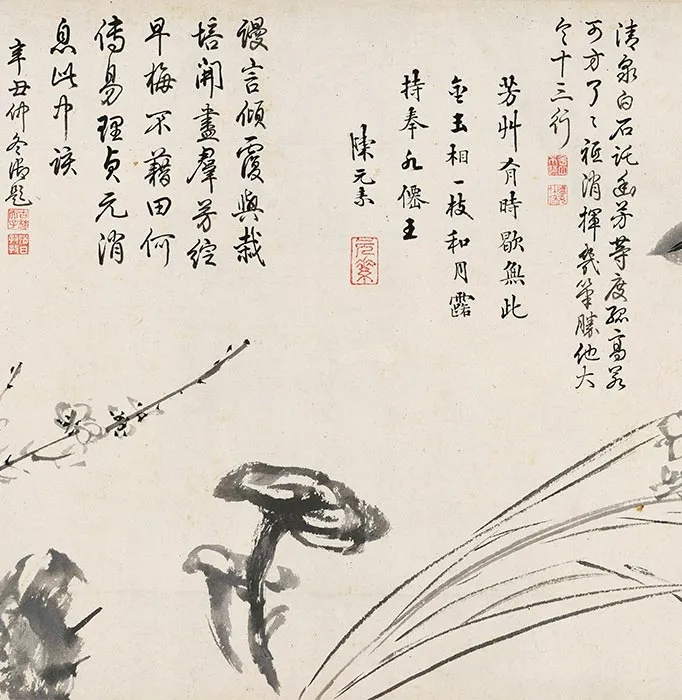 清泉白石託幽芳等度孤高
可方了々祗消揮幾筆勝他大
令十三行
芳艸有時歇無此
金玉相一枝和月露
持奉水僊王
陳元素
元素
謾言傾覆與栽
培開盡羣芳綻
早梅不藉田何
傳易理貞元消
息此中該
辛丑仲冬御題